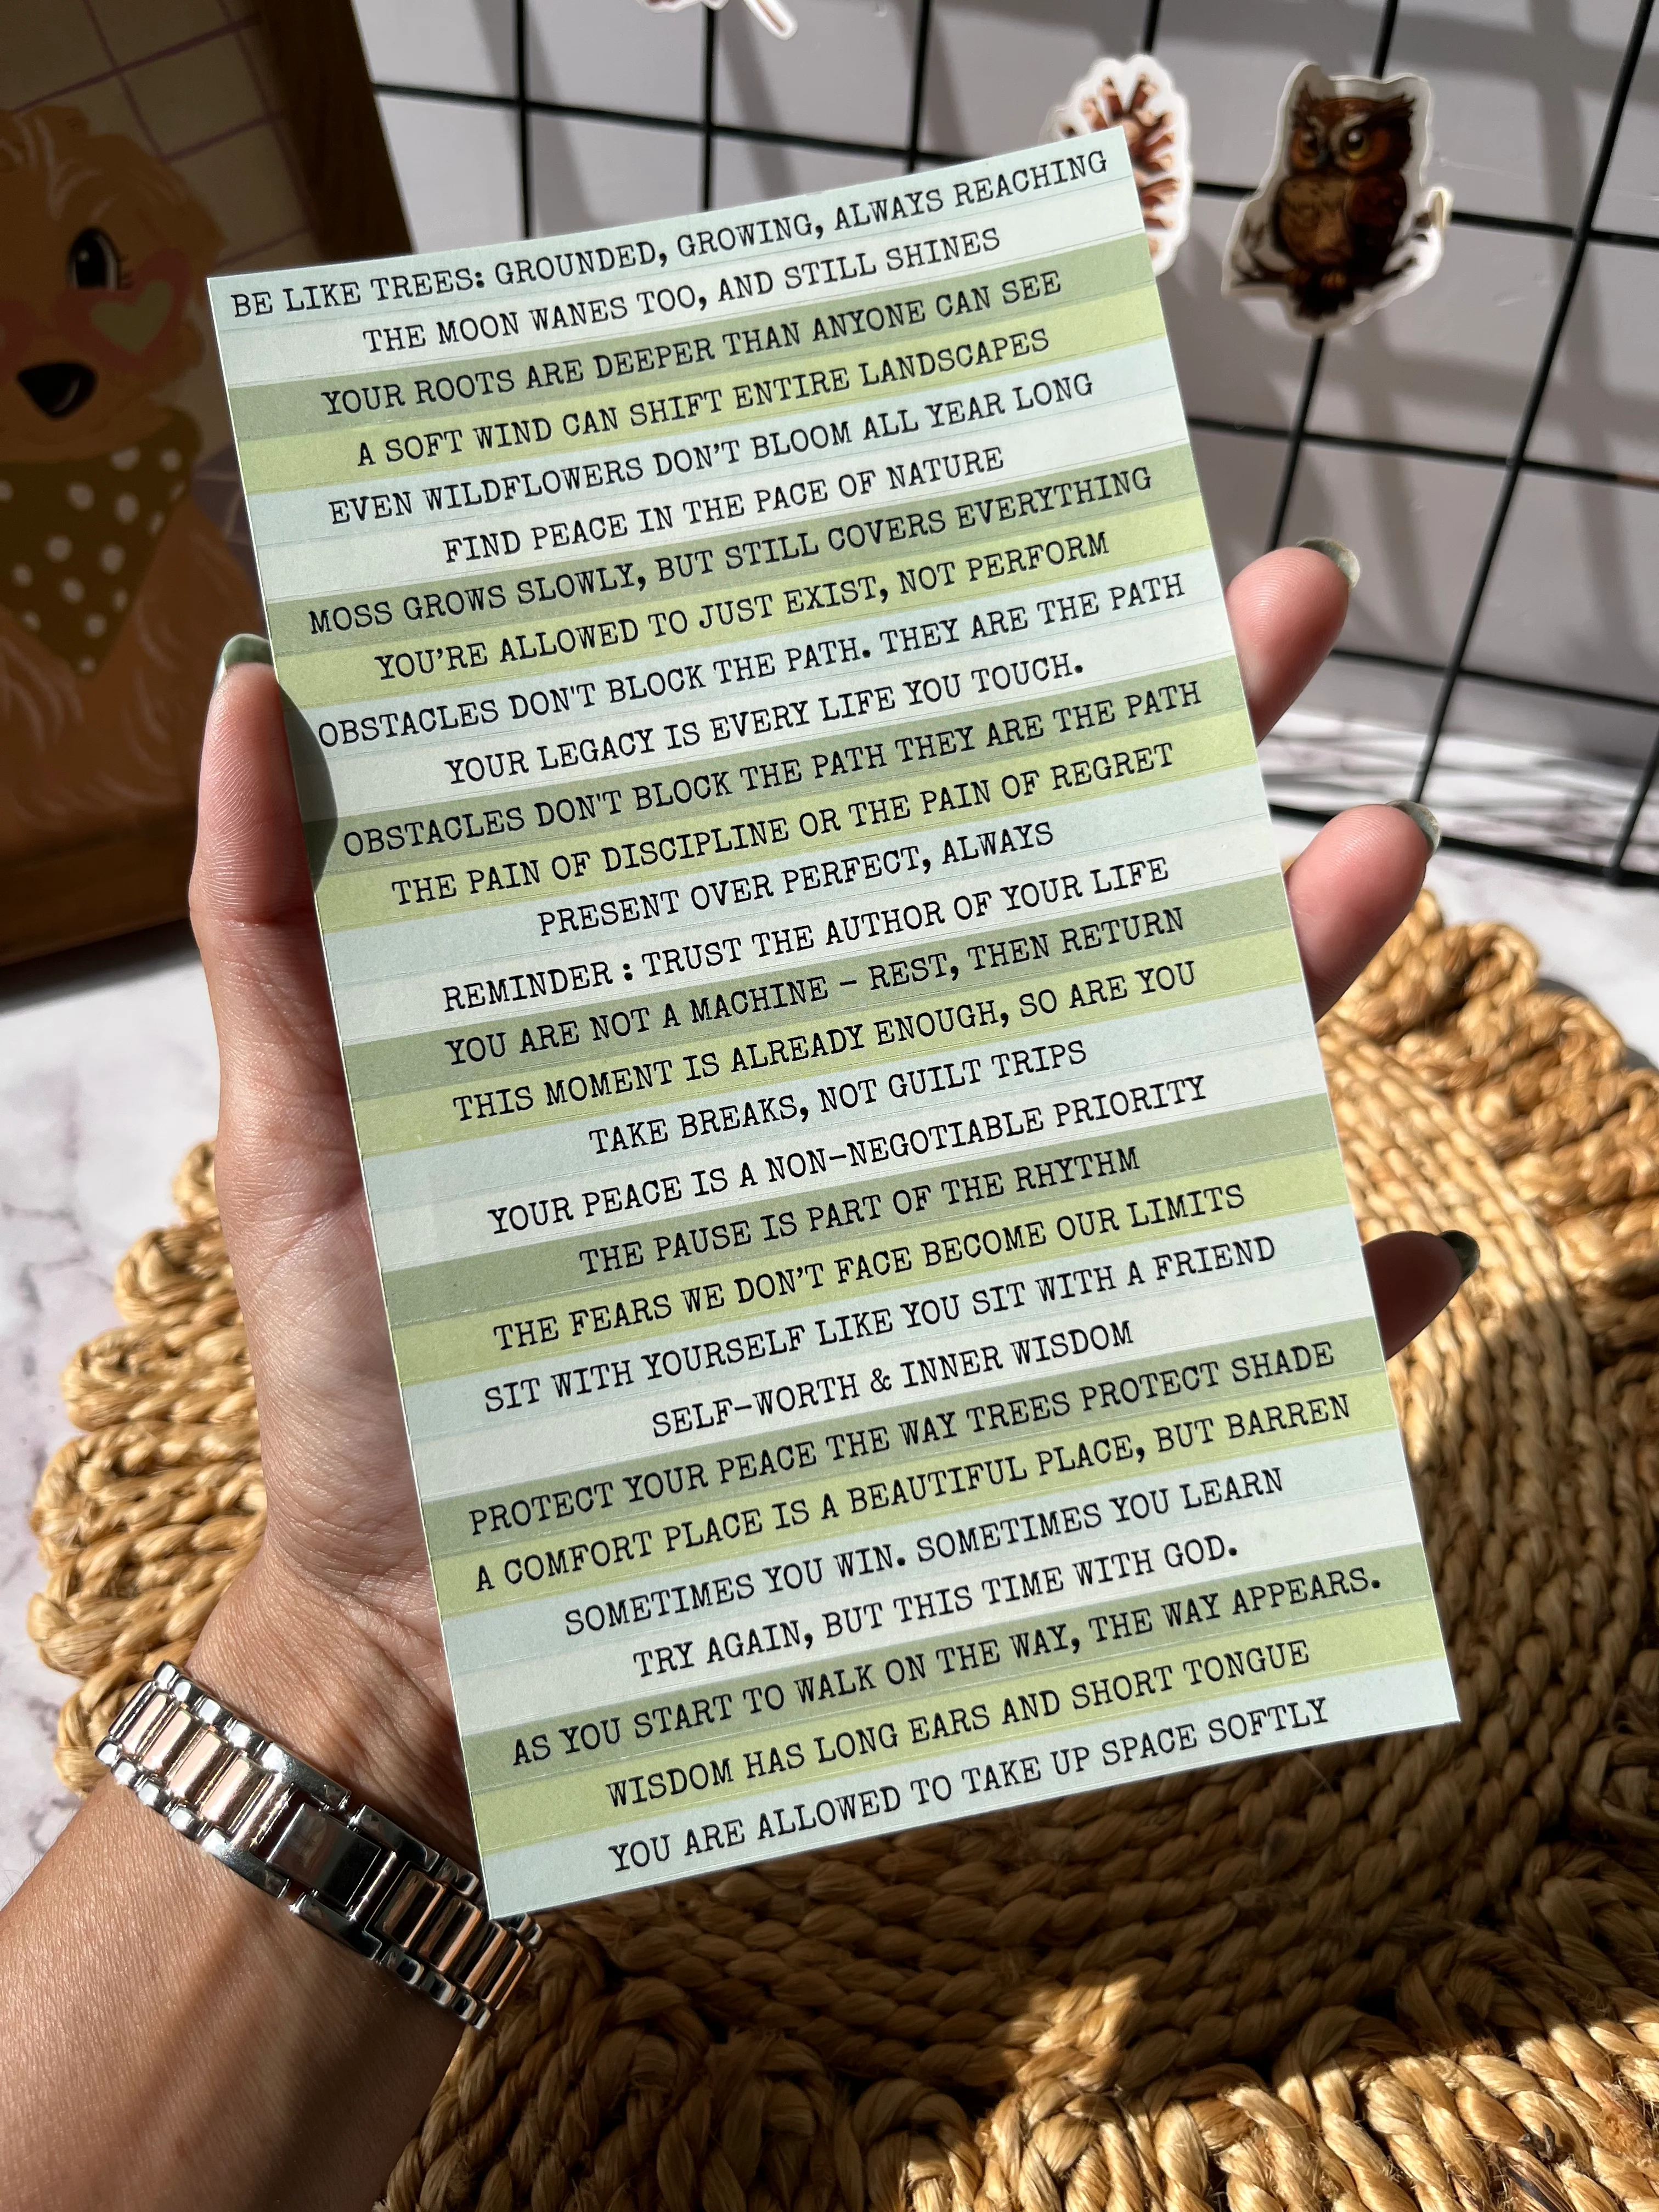 BE LIKE TREES: GROUNDED, GROWING, ALWAYS REACHING
THE MOON WANES TOO, AND STILL SHINES
YOUR ROOTS ARE DEEPER THAN ANYONE CAN SEE
A SOFT WIND CAN SHIFT ENTIRE LANDSCAPES
EVEN WILDFLOWERS DON’T BLOOM ALL YEAR LONG
FIND PEACE IN THE PACE OF NATURE
MOSS GROWS SLOWLY, BUT STILL COVERS EVERYTHING
YOU’RE ALLOWED TO JUST EXIST, NOT PERFORM
OBSTACLES DON'T BLOCK THE PATH. THEY ARE THE PATH
YOUR LEGACY IS EVERY LIFE YOU TOUCH.
OBSTACLES DON'T BLOCK THE PATH THEY ARE THE PATH
THE PAIN OF DISCIPLINE OR THE PAIN OF REGRET
PRESENT OVER PERFECT, ALWAYS
REMINDER : TRUST THE AUTHOR OF YOUR LIFE
YOU ARE NOT A MACHINE – REST, THEN RETURN
THIS MOMENT IS ALREADY ENOUGH, SO ARE YOU
TAKE BREAKS, NOT GUILT TRIPS
YOUR PEACE IS A NON-NEGOTIABLE PRIORITY
THE PAUSE IS PART OF THE RHYTHM
THE FEARS WE DON’T FACE BECOME OUR LIMITS
SIT WITH YOURSELF LIKE YOU SIT WITH A FRIEND
SELF-WORTH & INNER WISDOM
PROTECT YOUR PEACE THE WAY TREES PROTECT SHADE
A COMFORT PLACE IS A BEAUTIFUL PLACE, BUT BARREN
SOMETIMES YOU WIN. SOMETIMES YOU LEARN
TRY AGAIN, BUT THIS TIME WITH GOD.
AS YOU START TO WALK ON THE WAY, THE WAY APPEARS.
WISDOM HAS LONG EARS AND SHORT TONGUE
YOU ARE ALLOWED TO TAKE UP SPACE SOFTLY